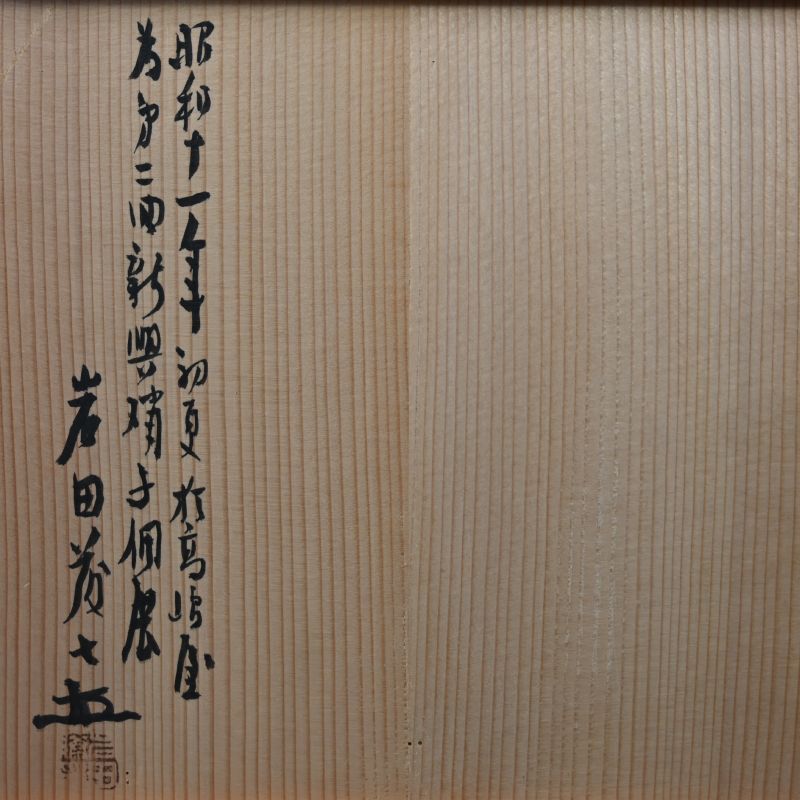 昭和十一年初夏於高島屋
為第二回新興硝子個展
岩田藤七